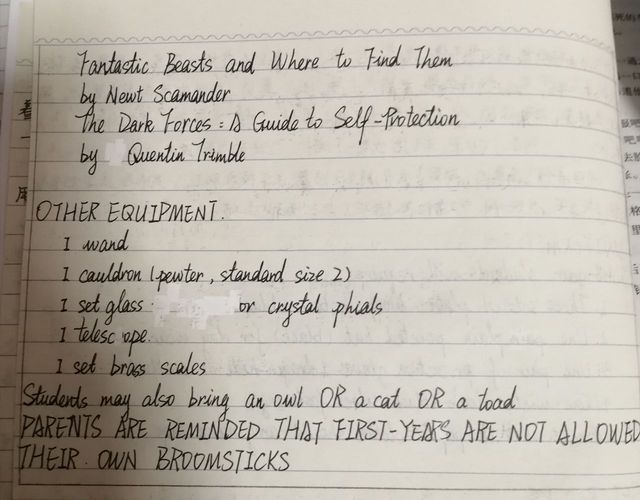 Fantastic Beasts and Where to Find Them
by Newt Scamander
The Dark Forces: A Guide to Self-Protection
by Quentin Trimble
OTHER EQUIPMENT.
1 wand
1 cauldron (pewter, standard size 2)
1 set glass or crystal phials
1 telescope.
1 set brass scales
Students may also bring an owl OR a cat OR a toad
PARENTS ARE REMINDED THAT FIRST-YEARS ARE NOT ALLOWED
THEIR OWN BROOMSTICKS